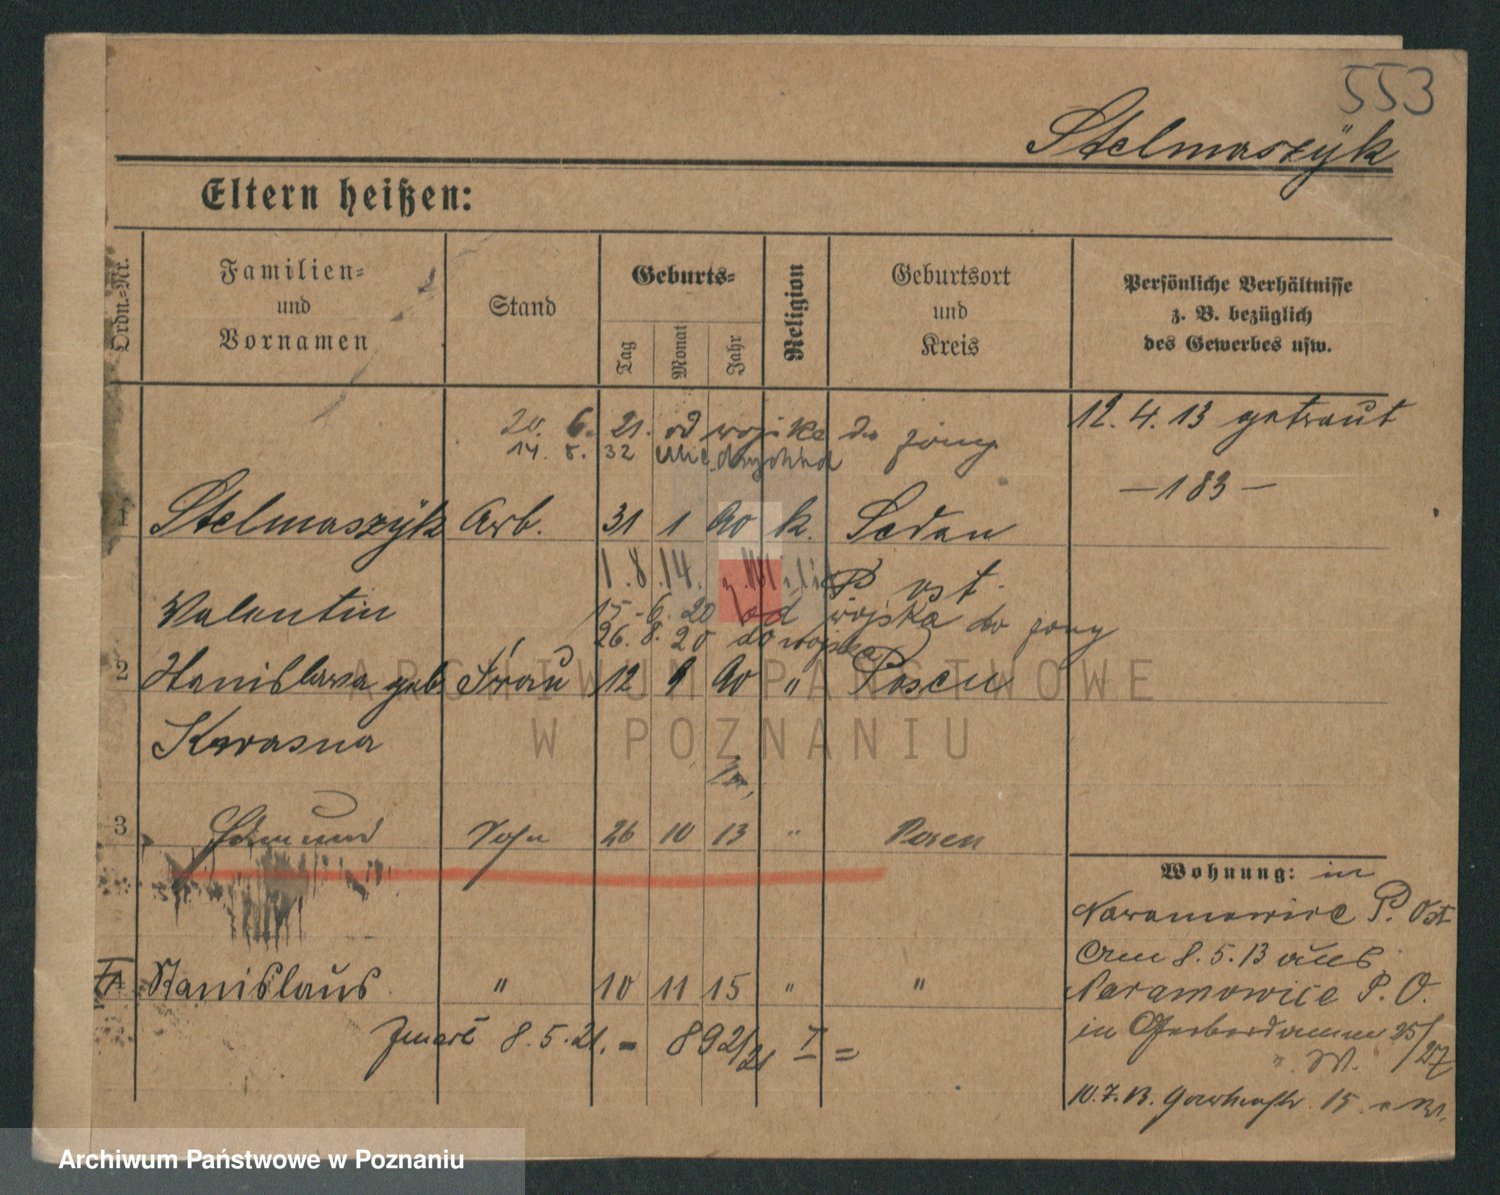 553
Stelmaszÿk
Eltern heißen:
Ordn.=Nr.
Familien=
und
Vornamen
Stand
Geburts=
Tag
Monat
Jahr
Religion
Geburtsort
und
Kreis
Persönliche Verhältnisse
z. B. bezüglich
des Gewerbes usw.
20. 6. 21. od wojska do żony
14. 8. 32
12. 4. 13 getraut
— 183 —
1 Stelmaszÿk Arb. 31 1 90 k. Sedan
1. 8. 14. z. Milit. P ost.
Valentin
15. 6. 20 od wojska do żony
26. 8. 20 do wojska
2 Stanislawa geb. Frau 12 9 90 " Posen
Kwasna
3 Edmund Sohn 26 10 13 " Posen
4 Stanislaus " 10 11 15 " "
Zmarł 8. 5. 21. = 892/21 I =
Wohnung: in
Naramowice P. Ost
am 8. 5. 13 aus
Naramowice P. O.
in Gerberdamm 25/27
" W.
10. 7. 13. 15.
ARCHIWUM PAŃSTWOWE
W POZNANIU
Archiwum Państwowe w Poznaniu